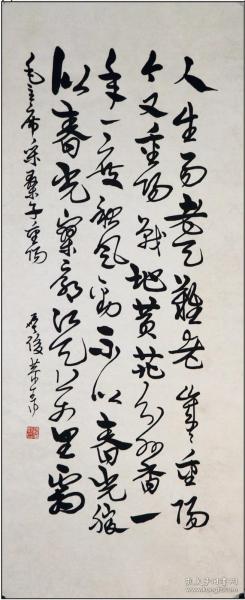 人生易老天難老歲々重陽
今又重陽戰地黄花分外香一
年一度秋風勁不似春光勝
似春光寥廓江天万里霜
毛主席采桑子重陽